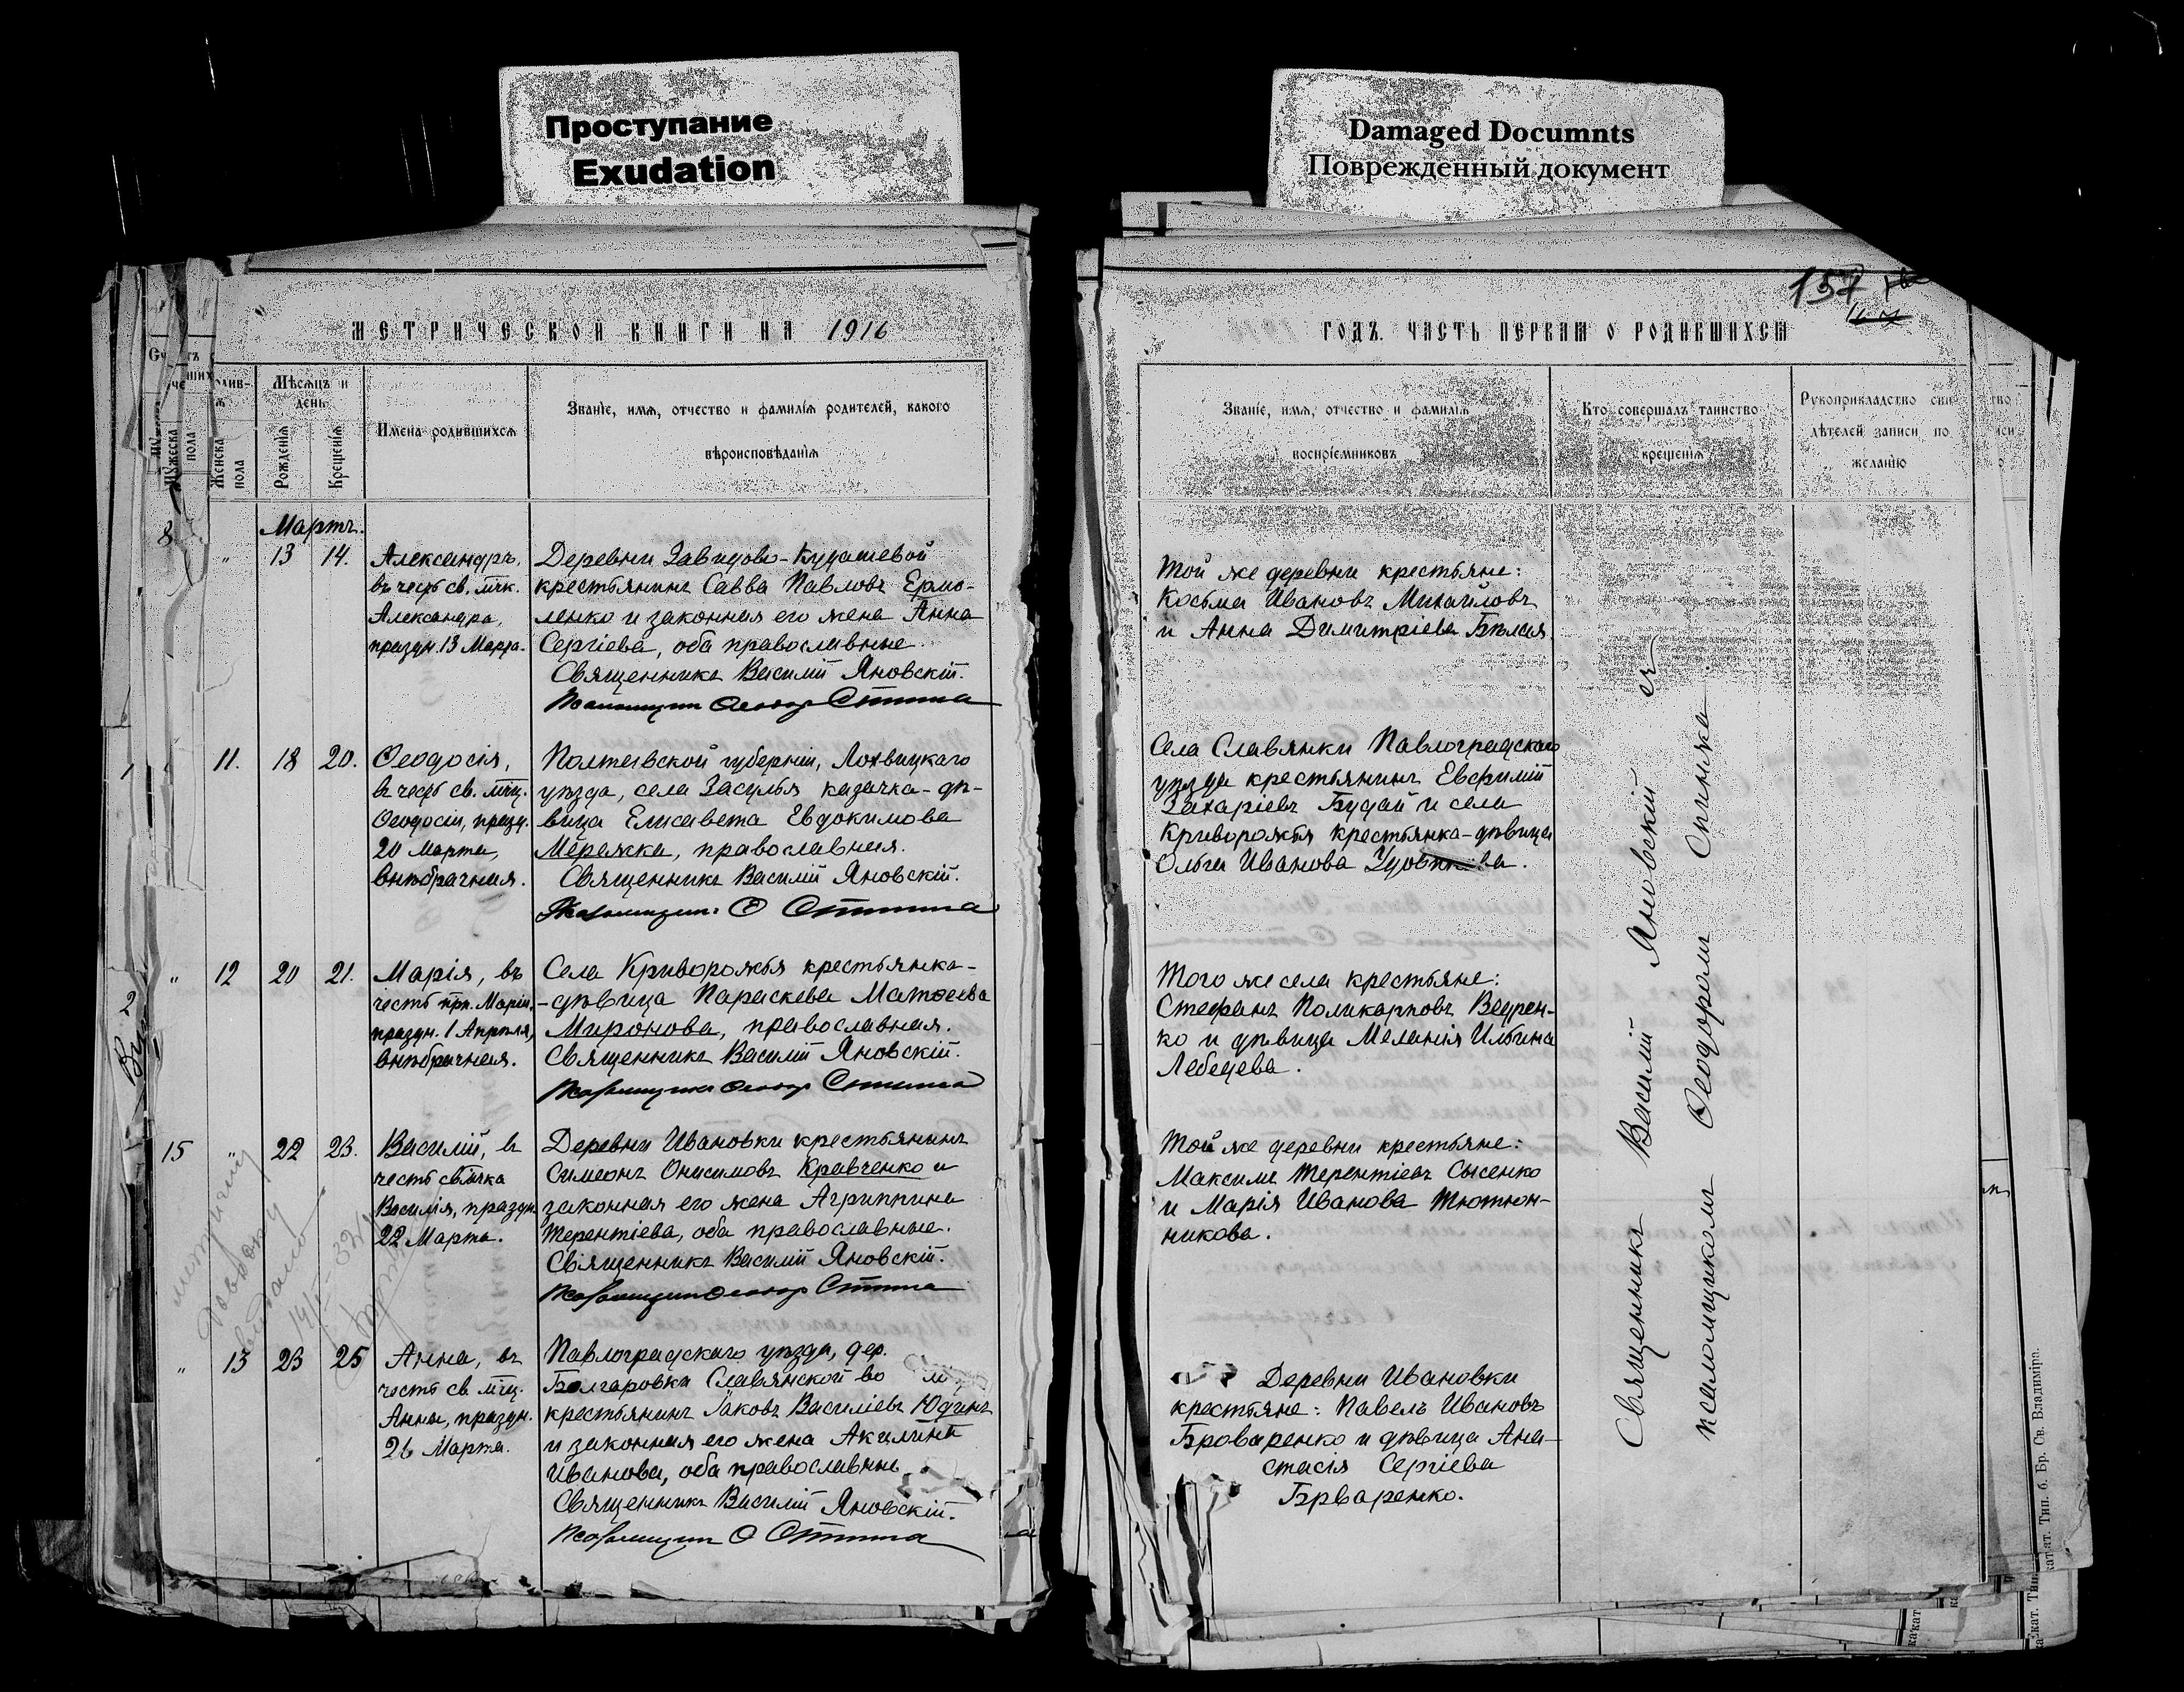 Проступание
Exudation
Damaged Documnts
Поврежденный документ
157
МЕТРИЧЕСКОЙ КНИГИ НА 1916
ГОДЪ. ЧАСТЬ ПЕРВАЯ О РОДИВШИХСЯ
Мужеска пола
Женска пола
Мѣсяцъ и день
Рожденія
Крещенія
Имена родившихся
Званіе, имя, отчество и фамилія родителей, какого
вѣроисповѣданія
Званіе, имя, отчество и фамилія
воспріемниковъ
Кто совершалъ таинство
крещенія
Рукоприкладство сви-
дѣтелей записи по
желанію
Мартъ.
8 " 13 14.
Александръ,
въ честь св. мчк.
Александра,
праздн. 13 Марта.
Деревни Завидово-Кудашевой
крестьянинъ Савва Павловъ Ермо-
ленко и законная его жена Анна
Сергіева, оба православные.
Священникъ Василій Яновскій.
Той же деревни крестьяне:
Косьма Ивановъ Михайловъ
и Анна Димитріева Бѣлая.
11. 18 20.
Ѳеодосія,
въ честь св. мчц.
Ѳеодосіи, празд.
20 Марта,
внѣбрачная.
Полтавской губерніи, Лохвицкаго
уѣзда, села Засулья казачка-дѣ-
вица Елисавета Евдокимова
Мережка, православная.
Священникъ Василій Яновскій.
Села Славянки Павлоградскаго
уѣзда крестьянинъ Евфимій
Захаріевъ Будай и села
Криворожья крестьянка-дѣвица
Ольга Иванова
" 12 20 21.
Марія, въ
честь прп. Маріи,
праздн. 1 Апрѣля,
внѣбрачная.
Села Криворожья крестьянка-
-дѣвица Параскева Матѳеева
Миронова, православная.
Священникъ Василій Яновскій.
Того же села крестьяне:
Стефанъ Поликарповъ Ведрен-
ко и дѣвица Меланія Ильина
Лебедева.
15 " 22 23.
Василій, въ
честь св. мчка
Василія, праздн.
22 Марта.
Деревни Ивановки крестьянинъ
Симеонъ Онисимовъ Кравченко и
законная его жена Агриппина
Терентіева, оба православные.
Священникъ Василій Яновскій.
Той же деревни крестьяне:
Максимъ Терентіевъ Сысенко
и Марія Иванова Тютюн-
никова.
" 13 23 25
Анна, въ
честь св. мчц.
Анны, праздн.
26 Марта.
Павлоградскаго уѣзда, дер.
Болгаровка Славянской во
крестьянинъ Іаковъ Василіевъ Юдинъ
и законная его жена Акилина
Иванова, оба православные
Священникъ Василій Яновскій.
Деревни Ивановки
крестьяне: Павелъ Ивановъ
Броваренко и дѣвица Ана-
стасія Сергіева
Брваренко.
Священникъ Василій Яновскій съ
псаломщикомъ Ѳеодоромъ
Тип. б. Бр. Св. Владиміра.